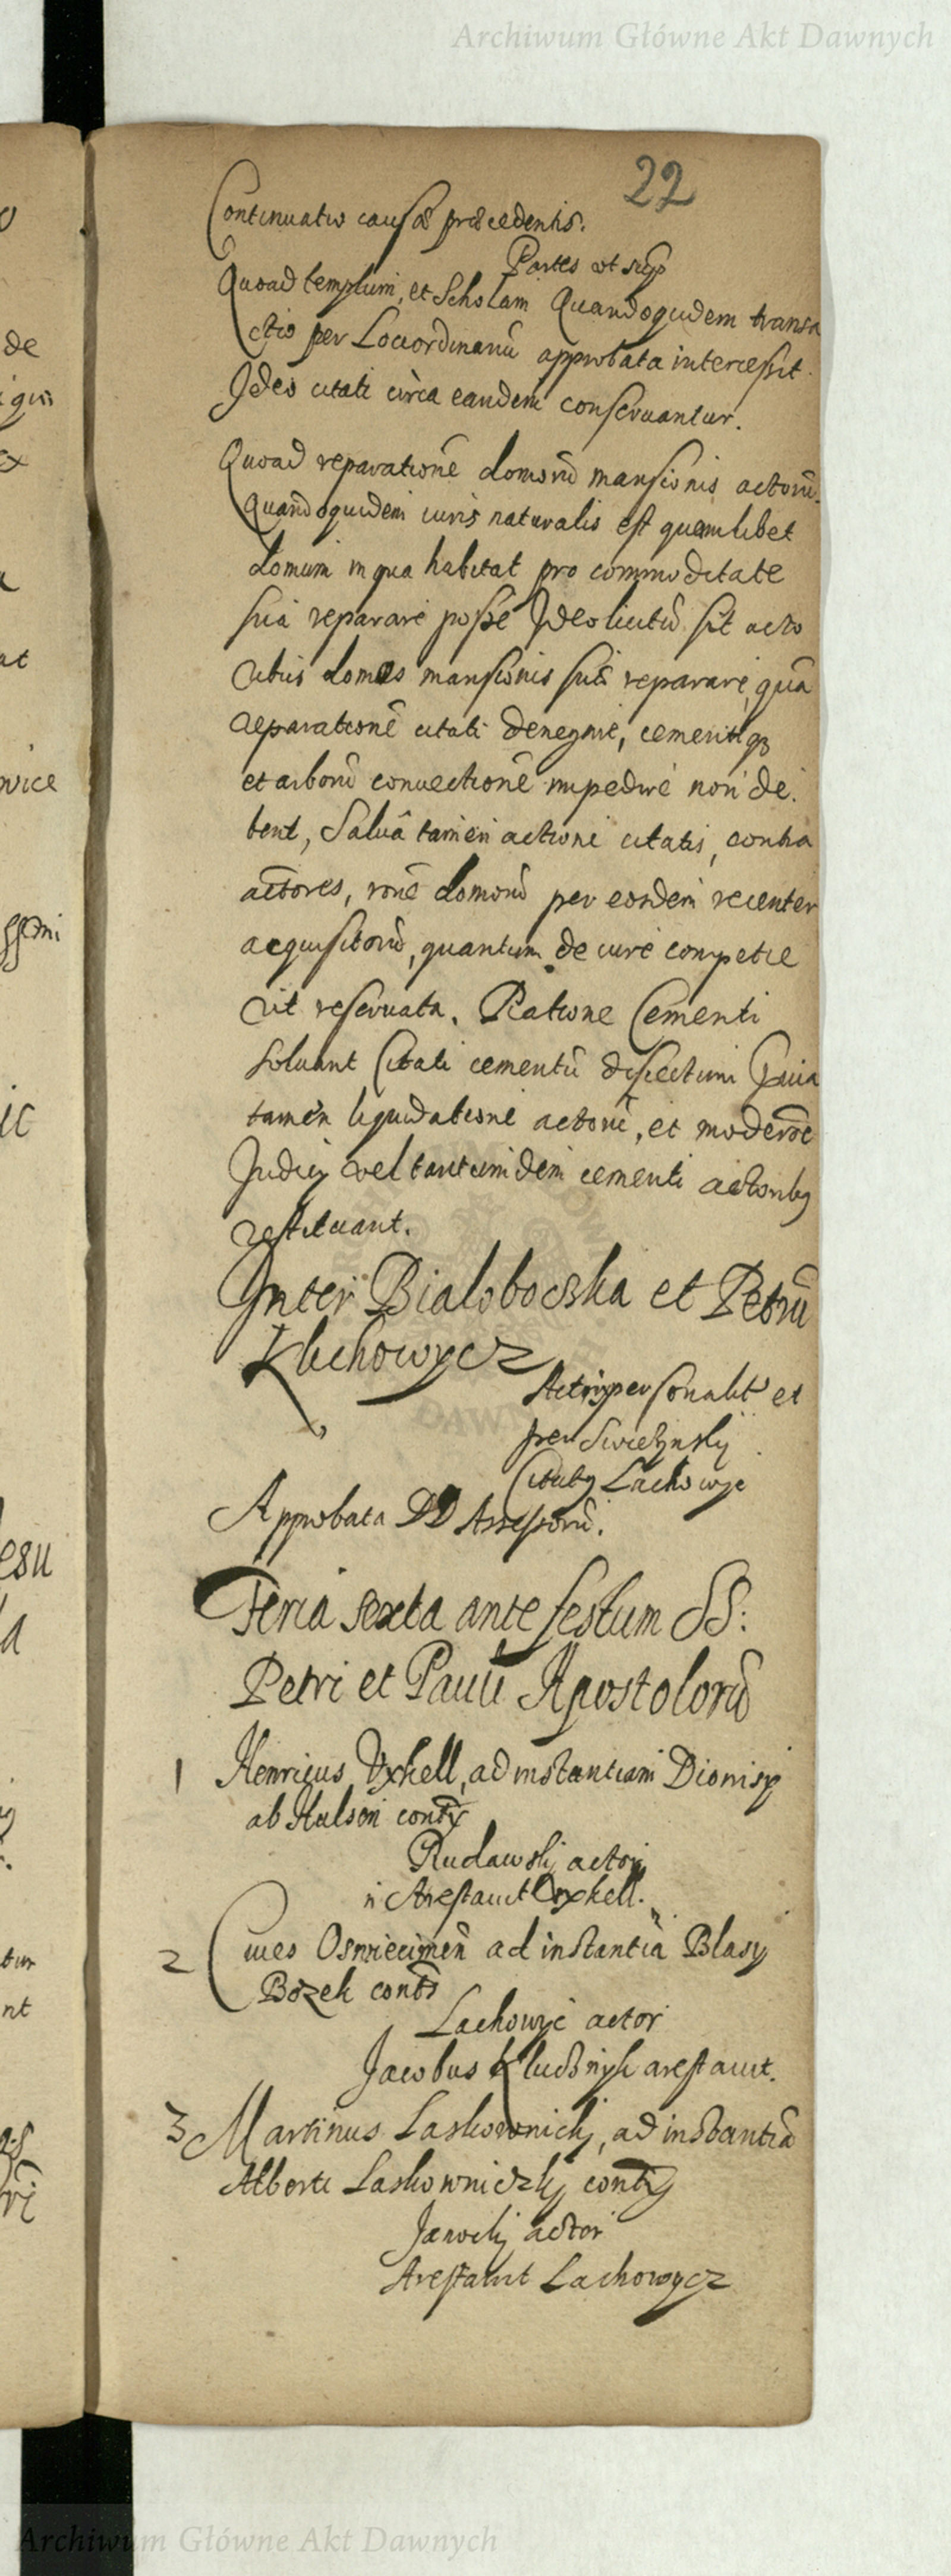 Archiwum Główne Akt Dawnych
22
Continuatio causæ præcedentis.
Partes ut sup
Quoad templum, et Scholam Quandoquidem transa
ctio per Loci ordinariũ approbata intercessit.
Ideo citati circa eandem conservantur.
Quoad reparationẽ domorũ mansionis actorũ.
Quandoquidem iuris naturalis est quemlibet
domum in qua habitat pro commoditate
sua reparare posse Ideo licitũ sit acto
ribus domos mansionis suæ reparare, quã
reparationẽ citati denegare, cementiq;
et arborũ convectionẽ impedire non de
bent, Salvâ tamen actione citatis, contra
actores, rõne domorũ per eosdem recenter
acquisitorũ, quantum de iure competie
rit reservata. Ratione Cementi
solvant Citati cementũ disiectum
tamen liquidatione actorũ, et moderõe
Judicij vel tantumdem cementi actoribus
restituant.
Inter Bialobocska et Petrũ
Klichowycz
Actrix personalit et
per Swiezynskij
Citatus Lachowyc
Approbata DD Assessorũ.
Feria sexta ante festum SS:
Petri et Pauli Apostolorũ
1 Henricus Vxkell, ad instantiam Dionisy
ab Hulsen contra
Rudawskj actor
Arestavit Vxkell.
2 Cives Osmiecimen ad instantiã Blasy
Bozek contra
Lachowyc actor
Jacobus Klucznyk arestavit.
3 Martinus Laskownickj, ad instantiã
Alberti Laskowniczkj contra
Janockj actor
Arestavit Lachowycz
Archiwum Główne Akt Dawnych